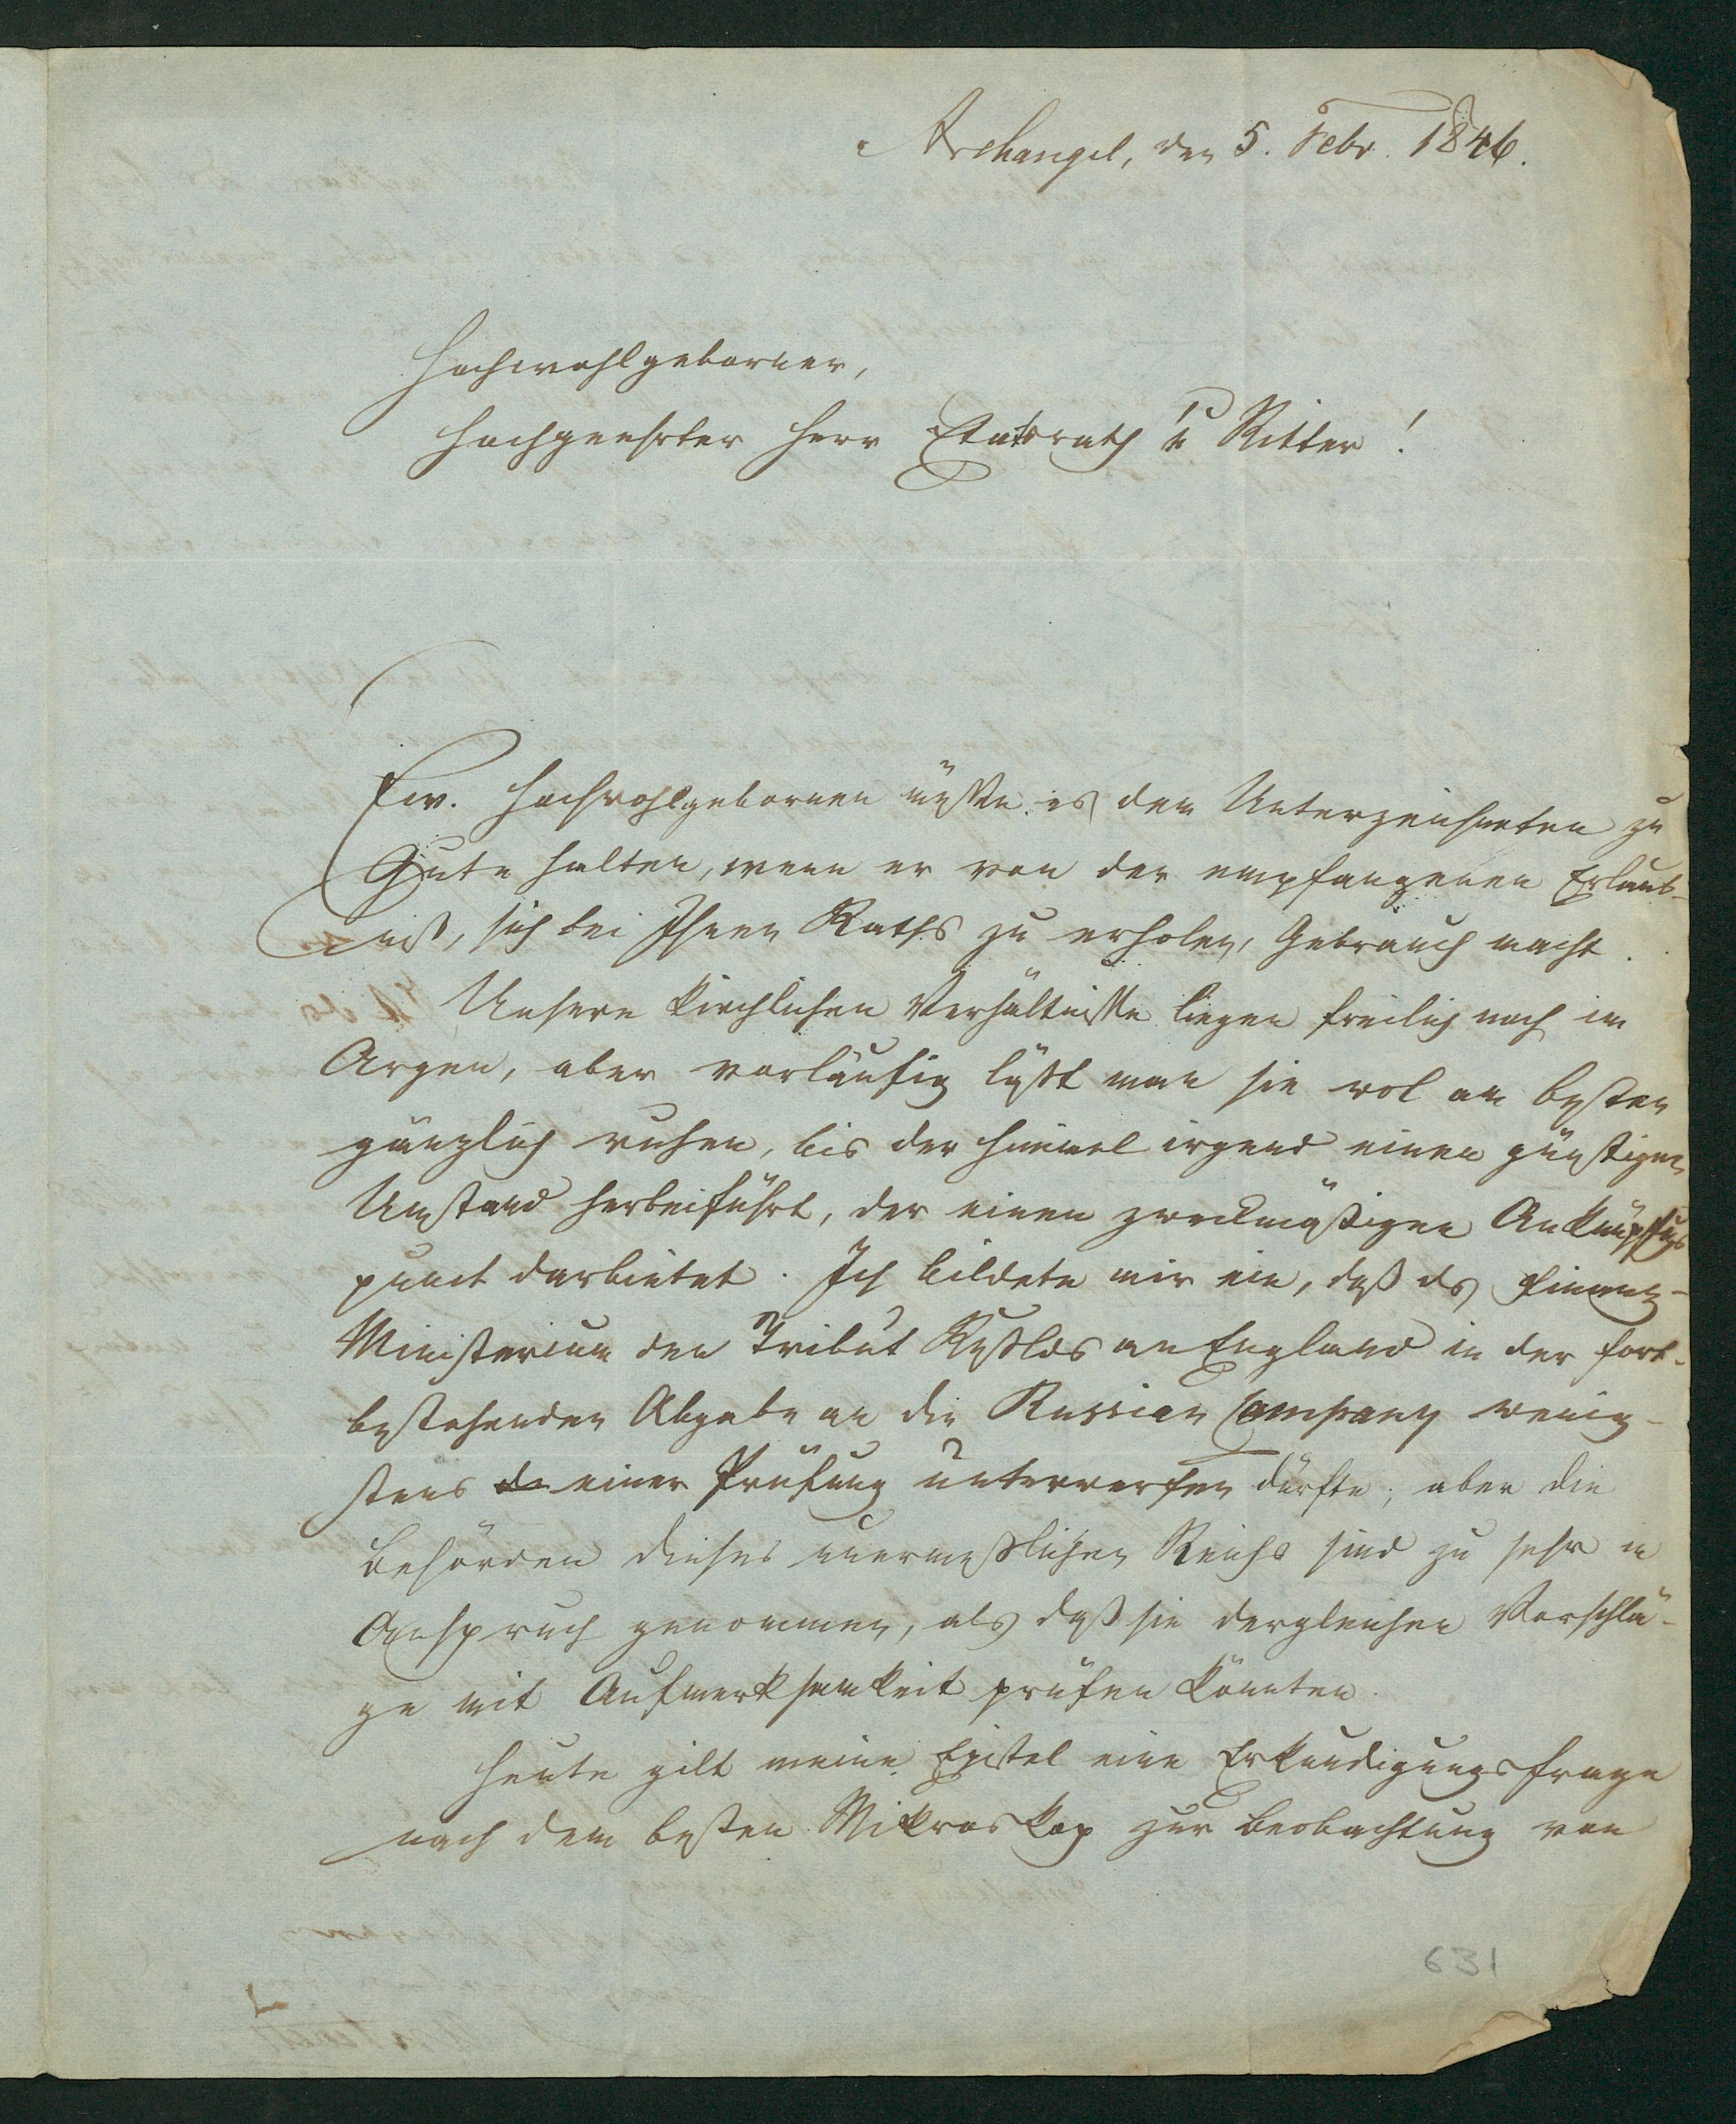 Archangel, den 5. Febr. 1846.
Hochwohlgeborner,
Hochgeehrter Herr Etatsrath u Ritter!
Ew. Hochwohlgebornen müssen es dem Unterzeichneten zu
Gute halten, wenn er von der empfangenen Erlaub-
niß, sich bei Ihnen Raths zu erholen, Gebrauch macht.
Unsere kirchlichen Verhältnisse liegen freilich noch im
Argen, aber vorläufig läßt man sie wol am besten
gänzlich ruhen, bis der Himmel irgend einen günstigen
Umstand herbeiführt, der einen zweckmäßigen Anknüpfungs
punct darbietet. Ich bildete mir ein, daß das Finanz-
Ministerium den Tribut Rußlds an England in der fort-
bestehenden Abgabe an die Russian Company wenig-
stens de einer Prüfung unterwerfen dürfte; aber die
Behörden dieses unermeßlichen Reichs sind zu sehr in
Anspruch genommen, als daß sie dergleichen Vorschlä-
ge mit Aufmerksamkeit prüfen könnten.
Heute gilt meine Epistel eine Erkundigungsfrage
nach dem besten Mikroskop zur Beobachtung von
631